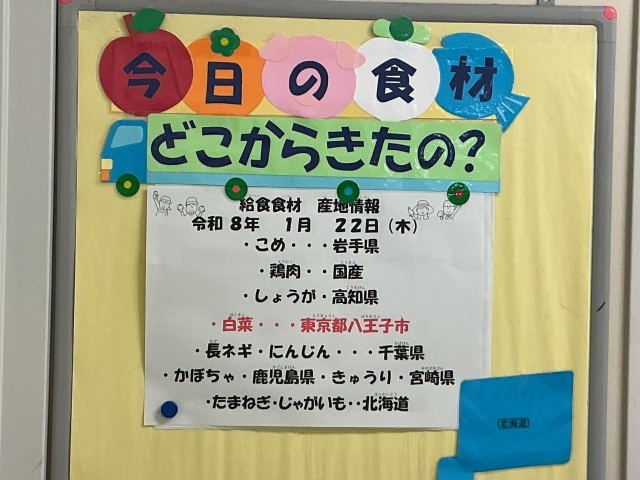 今日の食材
どこからきたの?
給食食材　産地情報
令和 8年　1月　22日（木）
・こめ・・・岩手県
・鶏肉・・国産
・しょうが・高知県
・白菜・・・東京都八王子市
・長ネギ・にんじん・・・千葉県
・かぼちゃ・鹿児島県・きゅうり・宮崎県
・たまねぎ・じゃがいも・・北海道
北海道